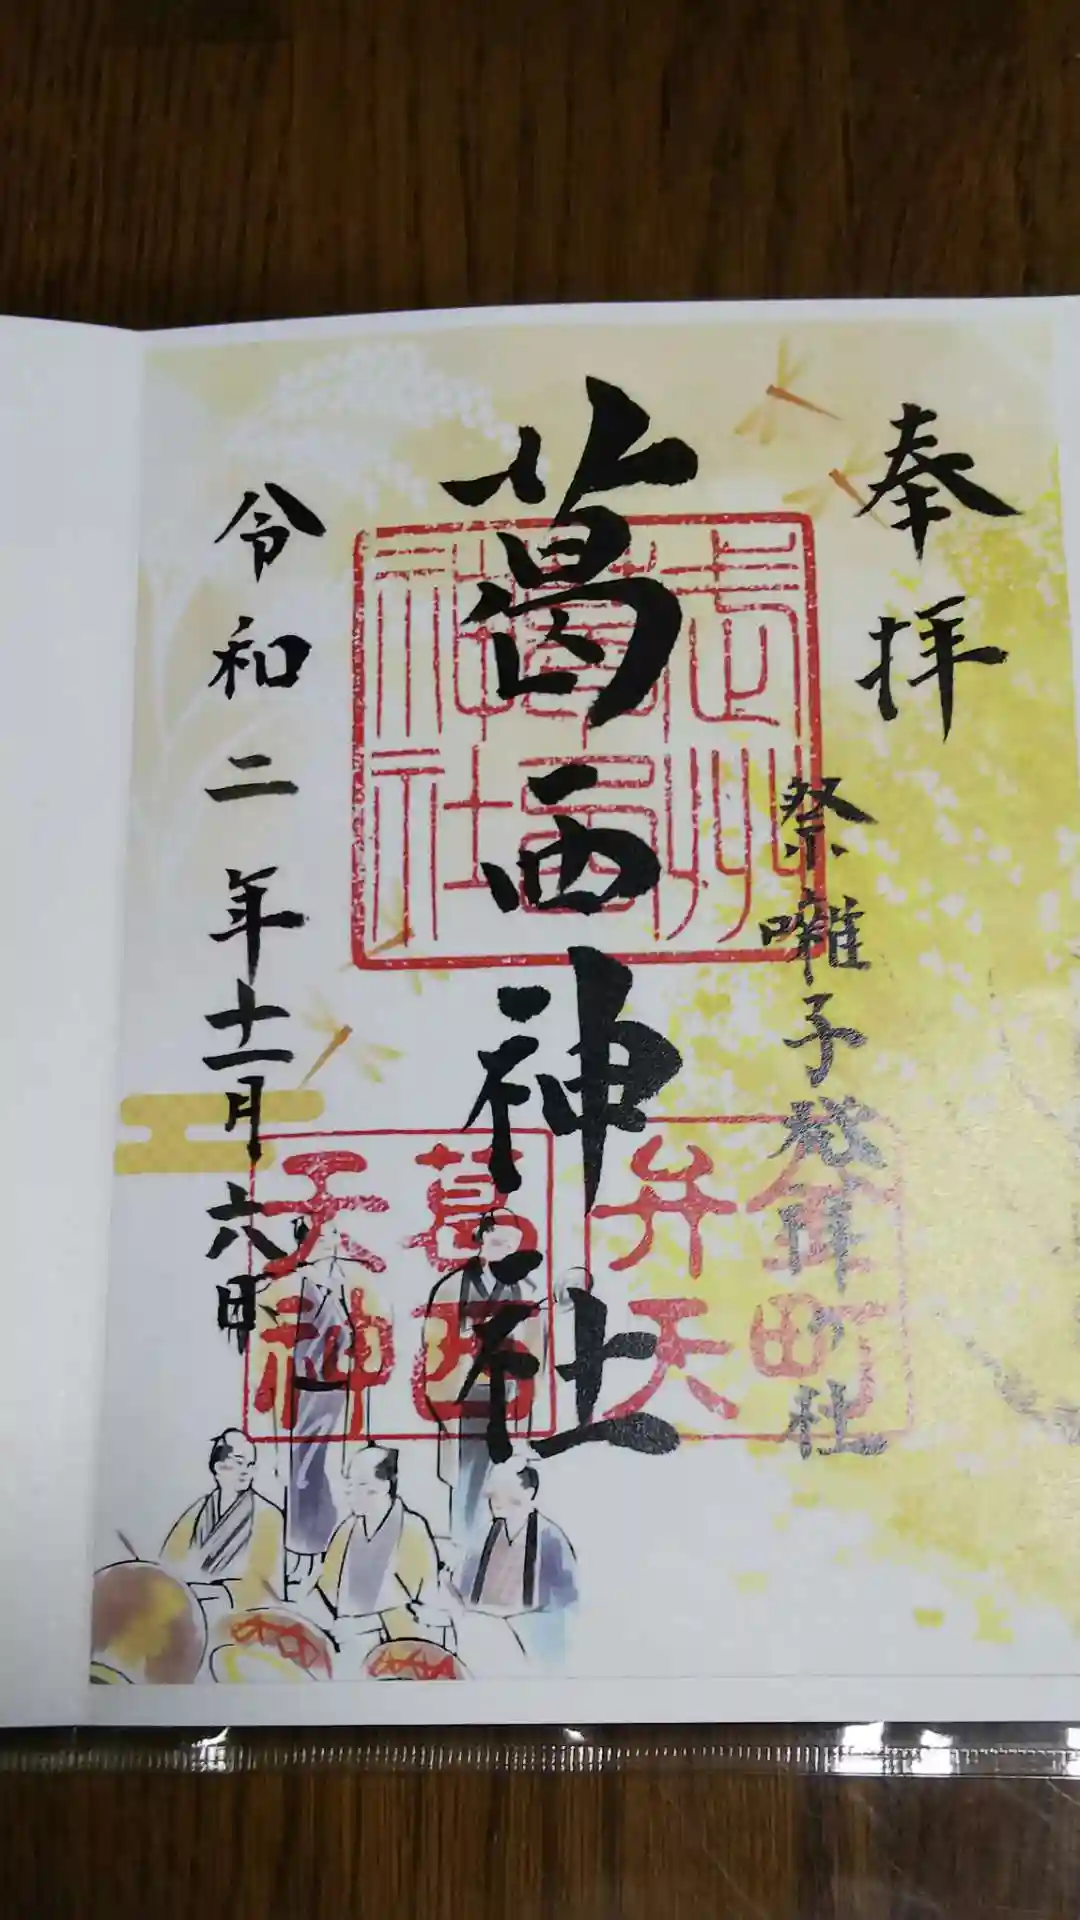 奉拝
祭囃子発祥社
葛西神社
令和二年十一月六日
武州
葛西
神社
金町
弁天
葛西
天神